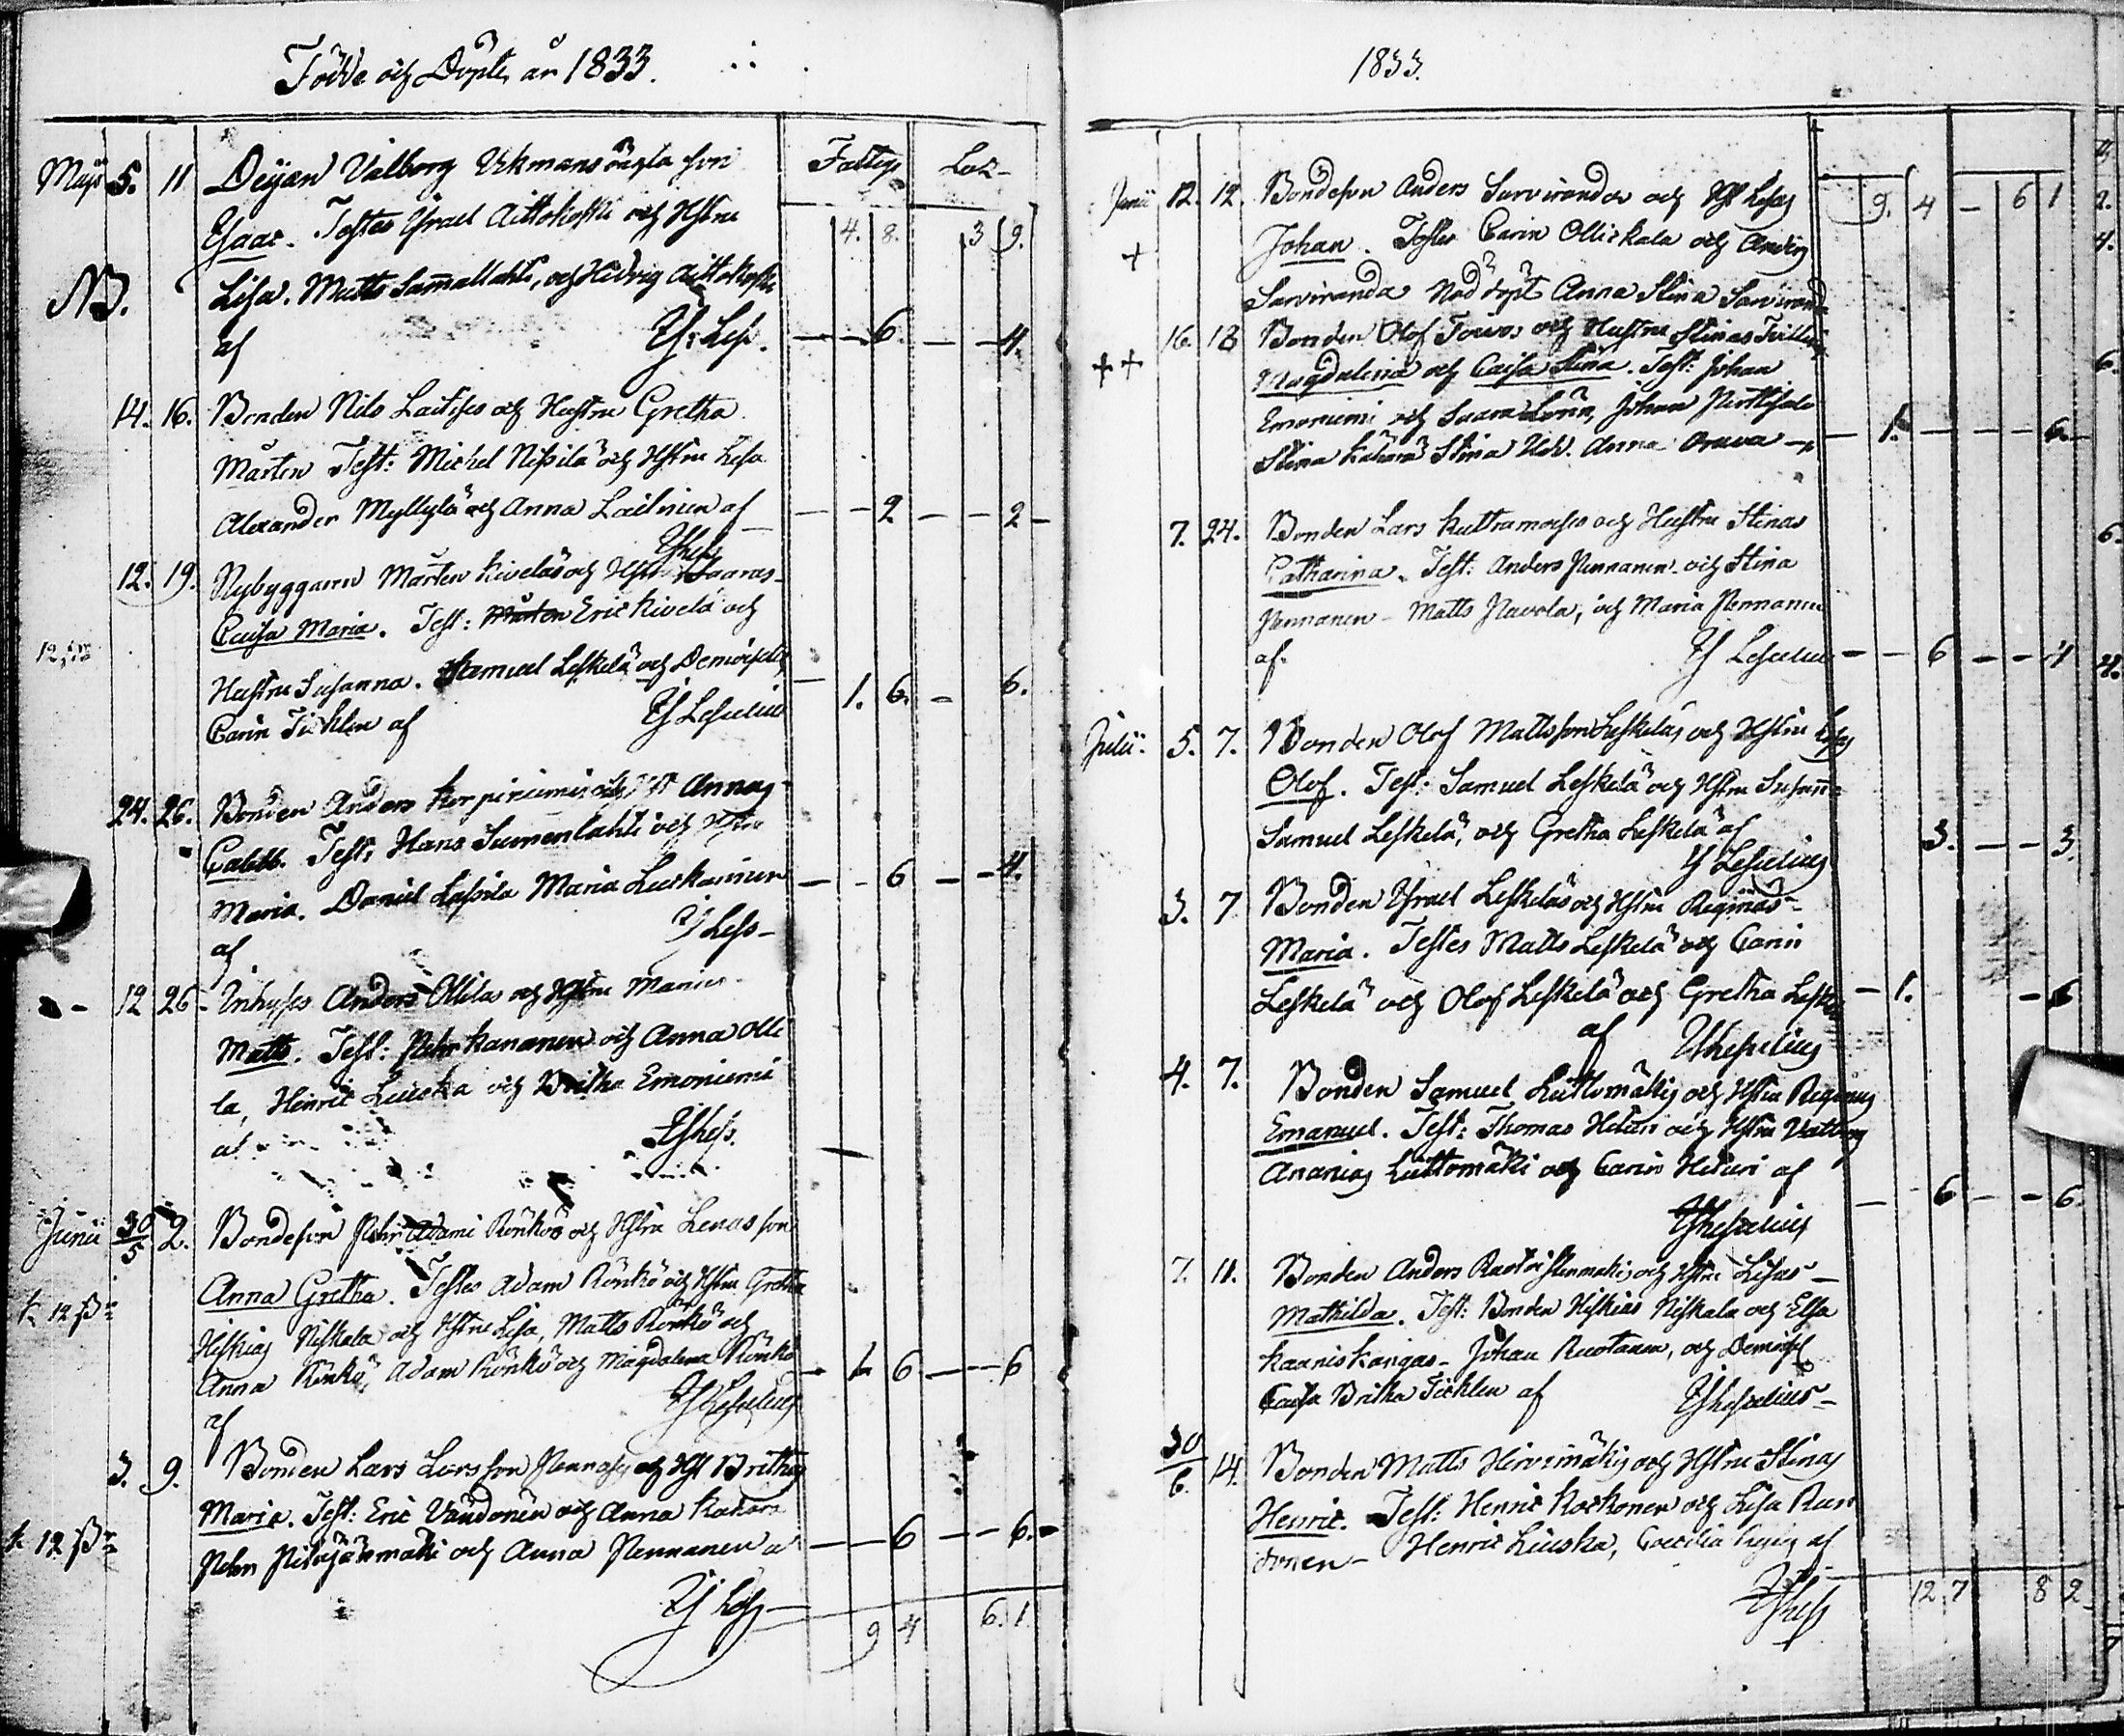 Födde och Döpte år 1833.
Fattig Laz-
4. 8. 3 9.
Maji 5. 11 Deijan Valborg Ukmans oägta son
Isaac. Testes Israel Aittokoski och Hstru
NB. Lisa. Matts Samallahti, och Hedvig Aittokoski
af Is: Less. — — 6. — — 4.
14. 16. Bonden Nils Laitises och Hustru Gretha
Mårten Test: Michel Nissilä och Hstru Lisa
Alexander Myllylä och Anna Laitinen af — — 2 — — 2 —
Is Less
12. 19. Nybyggaren Mårten Kiveläs och Hstru Saaras
Caisa Maria. Test: Eric Kivelä och
Hustru Susanna. Samuel Leskelä och Demoiselle — 1. 6. — 6.
Carin Ticklen af Is Lesselius
24. 26. Bonden Anders Korpiniemis och Hst Annas
Caleb. Test: Hans Sumenlahti och Hstru
Maria. Daniel Lassila Maria Luckarinen — — 6 — — 4.
af Is Less-
12 26 Inhyses Anders Ollilas och Hstru Marias
Matts. Test: Pehr Kananen och Anna Olli
la, Henric Liuska och Britha Emoniemi
af Is Less.
Junii 30/5 2. Bondeson Pehr Adami Rönkös och Hstru Lenas
Anna Gretha. Testes Adam Rönkö och Hstru Gretha
k. 12 ß Hiskias Niskala och Hstru Lisa, Matts Rönkö och
Anna Rönkö, Adam Rönkö och Magdalena Rönkö — 1 6 — — 6
af Is Lesselius
3. 9. Bonden Lars Larsson Pennases och Hst Brithas
Maria. Test: Eric Väudonen och Anna Kakara
k 12 ß Pehr Pitkäjänmäki och Anna Pennanen a — — 6 — — 6.
Is Less
9 4 6. 1
1833.
9. 4 — 6 1
Junii 12. 12. Bondeson Anders Sarvirandas och Hst Lisas
+ Johan. Testes Carin Ollickala och Anders
Sarviranda Nöddöpt Anna Stina Sarvirand
16. 18 Bonden Olof Toivos och Hustru Stinas Tvilling
++ Magdalena och Caisa Stina. Test: Johan
Emoniemi och Saara Johan
Stina Stina Anna Orava — 1. — — — 6.
7. 24. Bonden Lars Kuttramoises och Hustru Stinas
Catharina. Test: Anders Pennanen och Stina
Pennanen — Matts Pavola, och Maria Pennanen
af Is Lesselius — — 6 — — 4
Julii. 5. 7. Bonden Olof Mattsson Leskeläs och Hstru Lisas
Olof. Test: Samuel Leskelä och Hstru Susann
Samuel Leskelä, och Gretha Leskelä af 3. — — 3.
Is Lesselius
3. 7 Bonden Israel Leskeläs och Hstru Reginas
Maria. Testes Matts Leskelä och Carin
Leskelä och Olof Leskelä och Gretha Leske — 1. — 6
af Is Lesselius
4. 7. Bonden Samuel Luttomäkis och Hstru Reginas
Emanuel. Test: Thomas Heturi och Hstru Valborg
Ananias Luttomäki och Carin Heturi af
Is Lesselius — 6 — — 6.
7. 11. Bonden Anders och Hstru Lisas
Mathilda. Test: Bonden Hiskias Niskala och Elsa
Kaaniskangas — Johan Ruotanen, och Demoisel
Caisa Britha Ticklen af Is Lesselius
30/6. 14. Bonden Matts Hirvimäkis och Hstru Stinas
Henric. Test: Henric Korkonen och Lisa Ran
donen — Henric Liuska, Caecilia af
Is Less
12 7 8 2